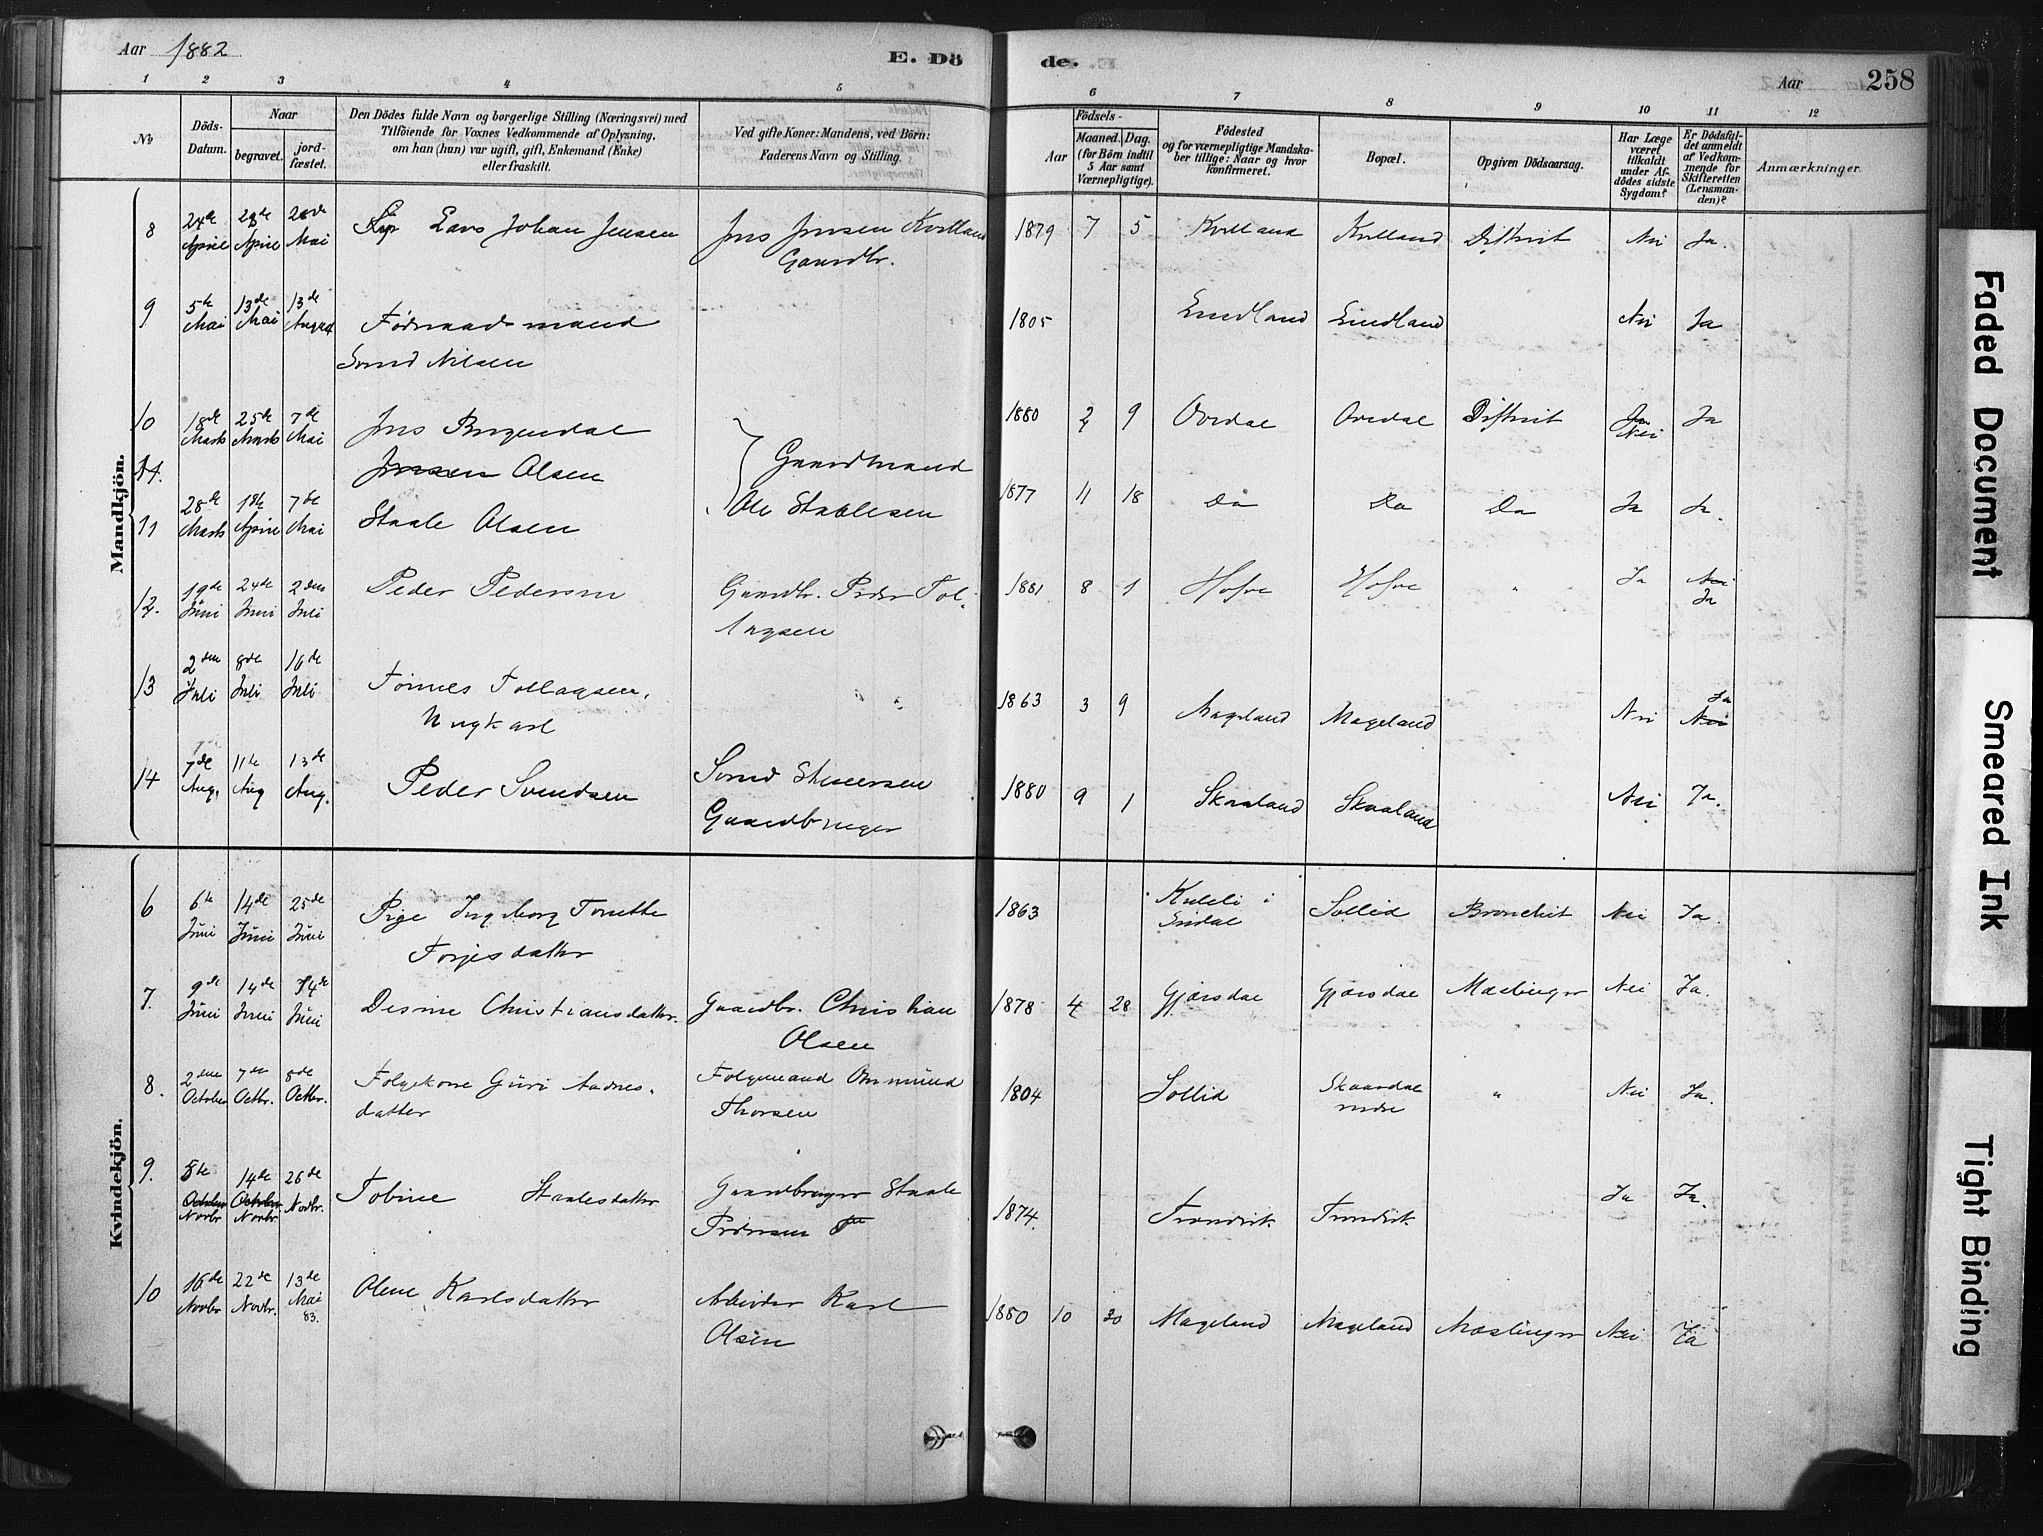 Aar 1882
E. Döde.
Aar 258
1 2 3 4 5 6 7 8 9 10 11 12
No
Döds-Datum.
Naar
begravet.
jordfæstet.
Den Dödes fulde Navn og borgerlige Stilling (Næringsvei) med
Tilföiende for Voxnes Vedkommende af Oplysning,
om han (hun) var ugift, gift, Enkemand (Enke)
eller fraskilt.
Ved gifte Koner: Mandens, ved Börn:
Faderens Navn og Stilling.
Födsels-
Aar
Maaned. Dag.
(for Börn indtil
5 Aar samt
Værnepligtige).
Födested
og for værnepligtige Mandskaber tillige: Naar og hvor
konfirmeret.
Bopæl.
Opgiven Dödsaarsag.
Har Læge
været
tilkaldt
under Afdödes sidste
Sygdom?
Er Dödsfaldet anmeldt
af Vedkommende for
Skifteretten
(Lensmanden)?
Anmærkninger.
Mandkjön.
8 24de April 28de April 28de Mai Lars Johan Jensen Jens Jensen Gaardbr. 1879 7 5 Nei Ja.
9 5te Mai 13de Mai 13de August Föderaadsmand
Svend Nilsen 1805 Nei Ja
10 18de Marts 25de Marts 7de Mai Jens
Jensen Olsen Gaardmand
Ole 1880 2 9 Ovedal Ovedal Difterit Nei Ja
11 28de Marts 1ste April 7de Mai Staale Olsen 1877 11 18 Do Do Do Ja Ja.
12. 19de Juni 24de Juni 2den Juli Peder Pedersen Gaardbr. Peder 1881 8 1 " Ja Nei
Ja
13 2den Juli 8de Juli 16de Juli Tönnes Tollagsen,
Ungkarl " 1863 3 9 Mageland Mageland Nei Ja
Nei
14 7de Aug. 11te Aug 13de Aug. Peder Svendsen Svend
Gaardbruger 1880 9 1 Skaaland Skaaland Nei Ja.
Kvindekjön.
6 6te Juni 14de Juni 25de Juni Pige Ingeborg Tonette
Torjesdatter 1863 i Sollid Bronchit Nei Ja.
7. 9de Juni 14de Juni 14de Juni Desine Christiansdatter. Gaardbr. Christian
Olsen 1878 4 28 Gjersdal Gjersdal Mæslinger Nei Ja.
8. 2den October 7de Octbr. 8de Octbr. Folgekone Guri Aadnesdatter Folgemand Ommund
Thorsen 1804 Sollid " Nei Ja.
9. 8de October
Novbr 14de October
Novbr 26de Novbr. Tobine Staalesdatter Gaardbruger Staale
Pedersen 1874. Ja Ja.
10 16de Novbr 22de Novbr. 13de Mai 83. Olene Karlsdatter Arbeider Karl
Olsen 1880 10 30 Mageland Mageland Mæslinger Nei Ja
Faded Document
Smeared Ink
Tight Binding